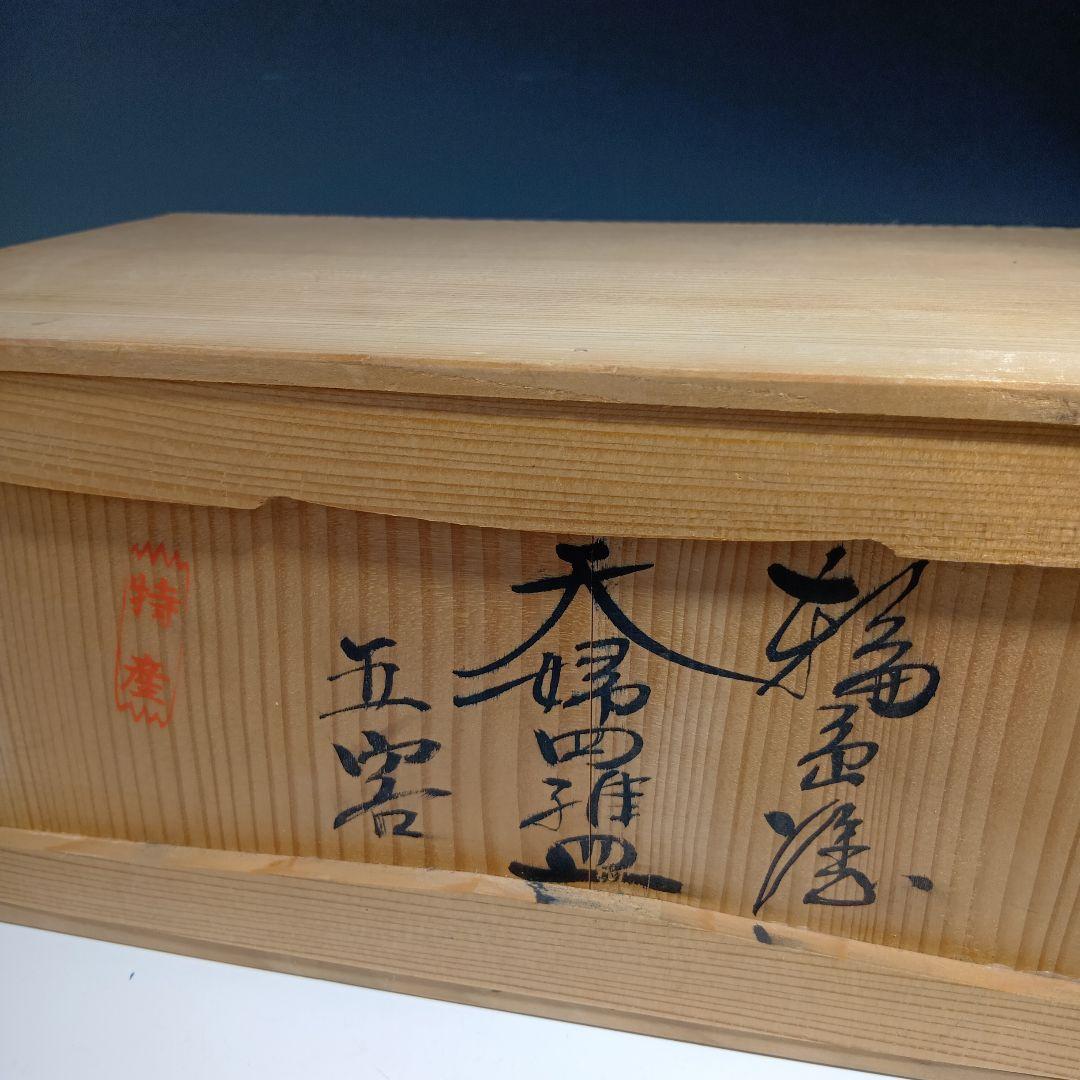 輪島塗
天婦羅皿
五客
特産